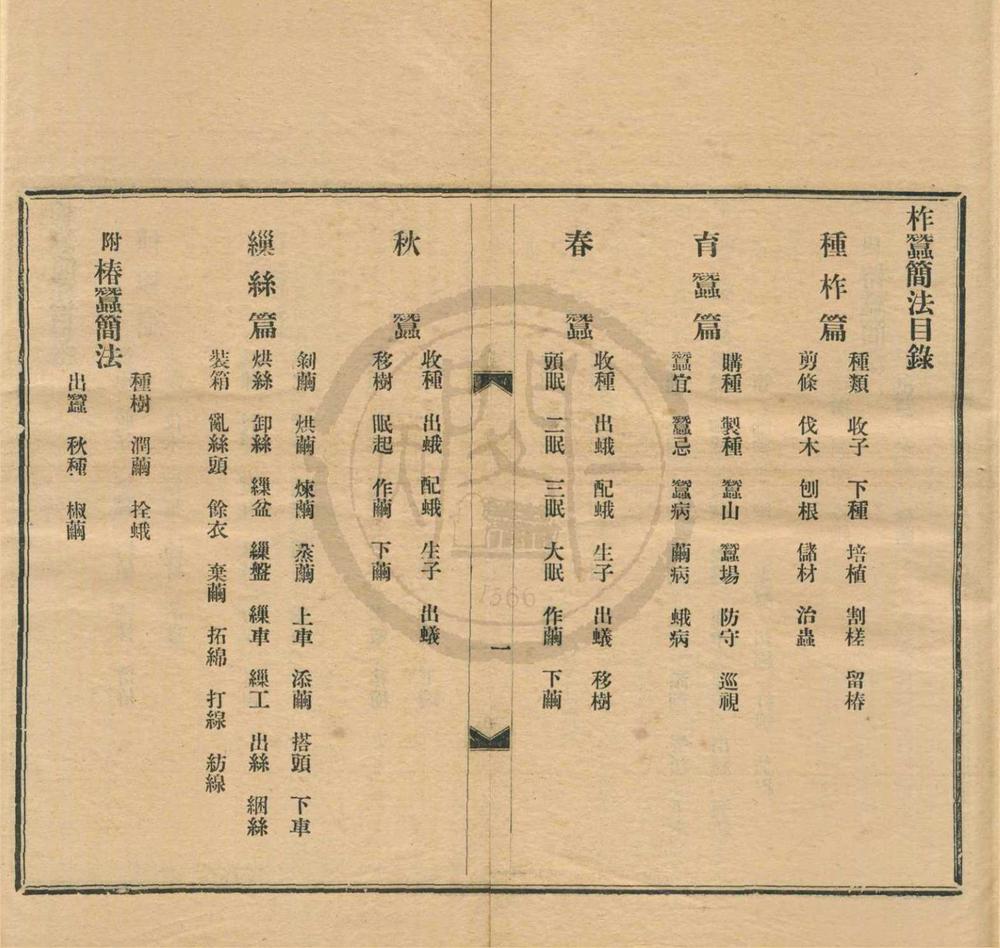 柞蠶簡法目錄
種柞篇
種類 收子 下種 培植 割槎 留椿
剪條 伐木 刨根 儲材 治蟲
育蠶篇
購種 製種 蠶山 蠶場 防守 巡視
蠶宜 蠶忌 蠶病 繭病 蛾病
春蠶
收種 出蛾 配蛾 生子 出蟻 移樹
頭眠 二眠 三眠 大眠 作繭 下繭
一
秋蠶
收種 出蛾 配蛾 生子 出蟻
移樹 眠起 作繭 下繭
繅絲篇
剝繭 烘繭 煉繭 蒸繭 上車 添繭 搭頭 下車
烘絲 卸絲 繅盆 繅盤 繅車 繅工 出絲 綑絲
裝箱 亂絲頭 餘衣 棄繭 拓綿 打線 紡線
附椿蠶簡法
種樹 潤繭 拴蛾
出蠶 秋種 椒繭
1366